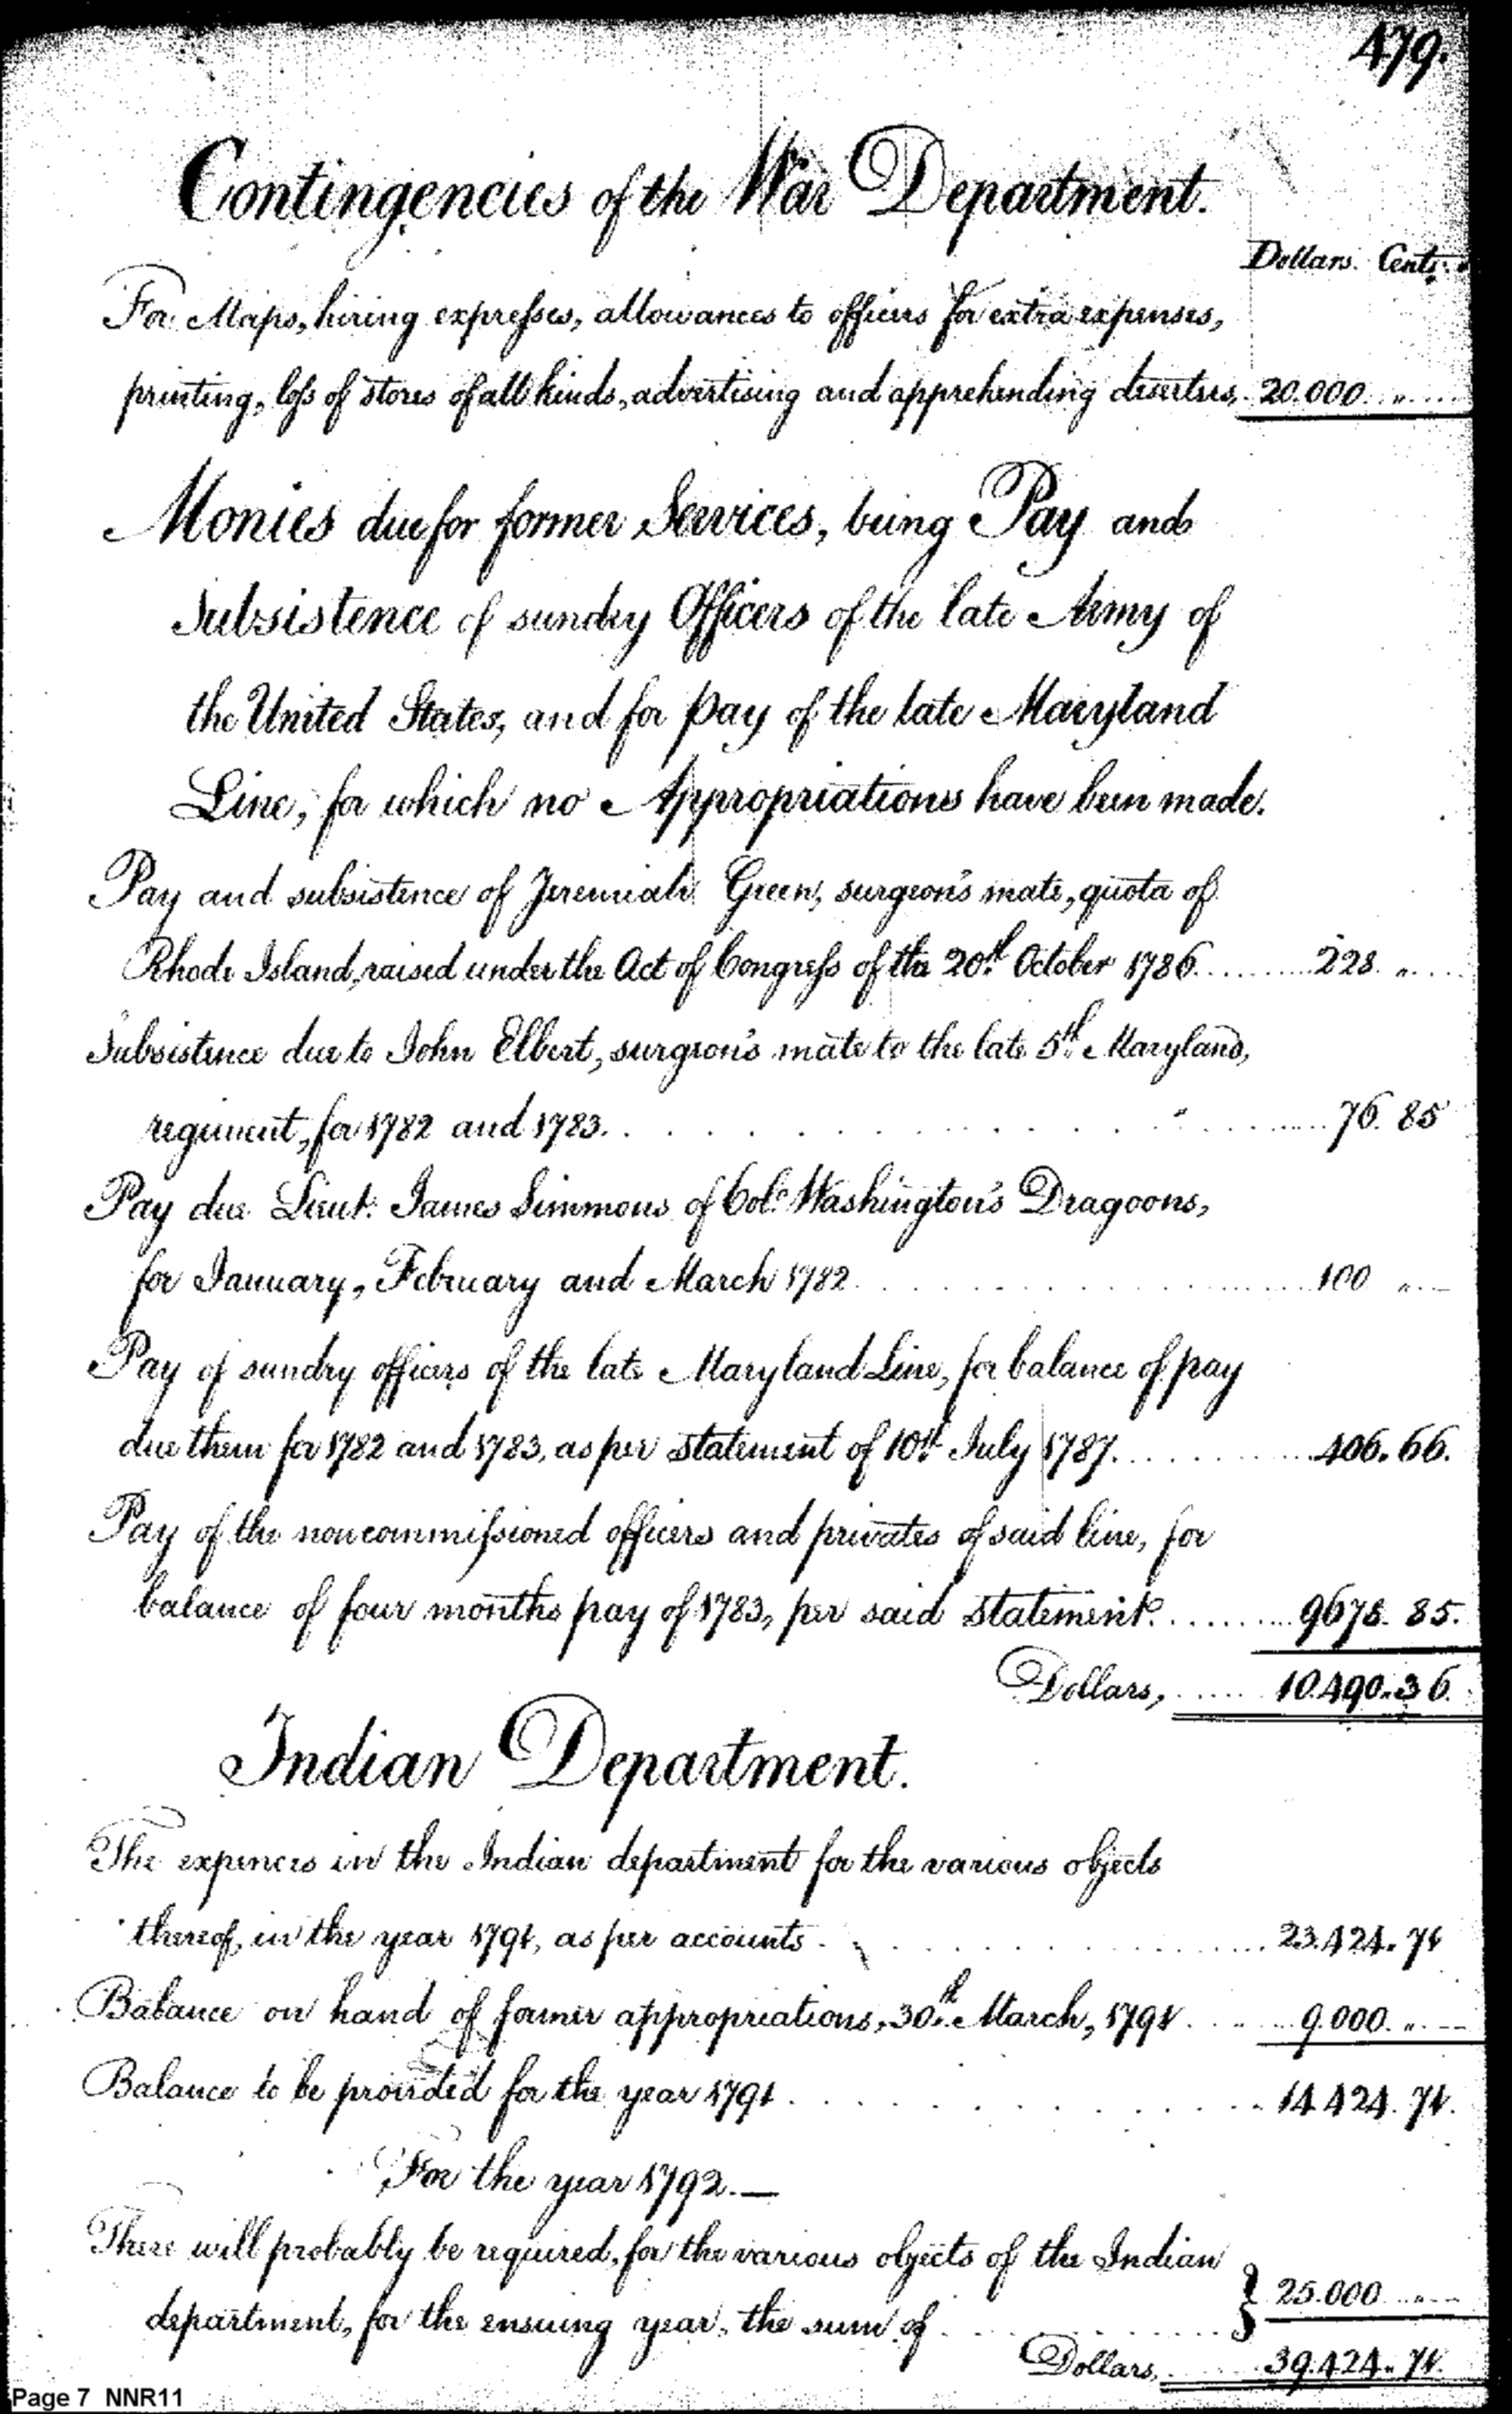 479.
Contingencies of the War Department.
Dollars. Cents.
For Maps, hiring expresses, allowances to officers for extra expenses,
printing, loss of stores of all kinds, advertising and apprehending deserters, 20.000 "
Monies due for former Services, being Pay and
Subsistence of sundry Officers of the late Army of
the United States, and for pay of the late Maryland
Line, for which no Appropriations have been made.
Pay and subsistence of Jeremiah Green, surgeon's mate, quota of
Rhode Island, raised under the Act of Congress of the 20th October 1786. 228. "
Subsistence due to John Elbert, surgeon's mate to the late 5th Maryland,
regiment, for 1782 and 1783. 76. 85
Pay due Lieut. James Simmons of Colo. Washington's Dragoons,
for January, February and March 1782. 100 "
Pay of sundry officers of the late Maryland Line, for balance of pay
due them for 1782 and 1783, as per statement of 10th July 1787. 406. 66.
Pay of the noncommissioned officers and privates of said line, for
balance of four months pay of 1783, per said statement. 9678. 85.
Dollars, 10.490. 36.
Indian Department.
The expences in the Indian department for the various objects
thereof, in the year 1791, as per accounts. 23.424. 71
Balance on hand of former appropriations, 30th March, 1791. 9.000. "
Balance to be provided for the year 1791. 14.424. 71.
For the year 1792.—
There will probably be required, for the various objects of the Indian
department, for the ensuing year, the sum of } 25.000 "
Dollars. 39.424. 71.
Page 7 NNR11